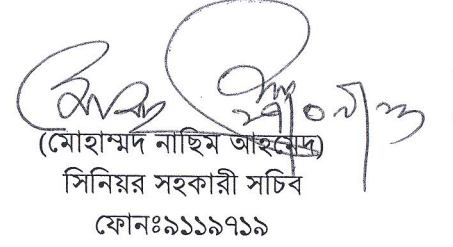 (মোহাম্মদ নাছিম আহমেদ)
সিনিয়র সহকারী সচিব
ফোনঃ৯১১৯৭১৯